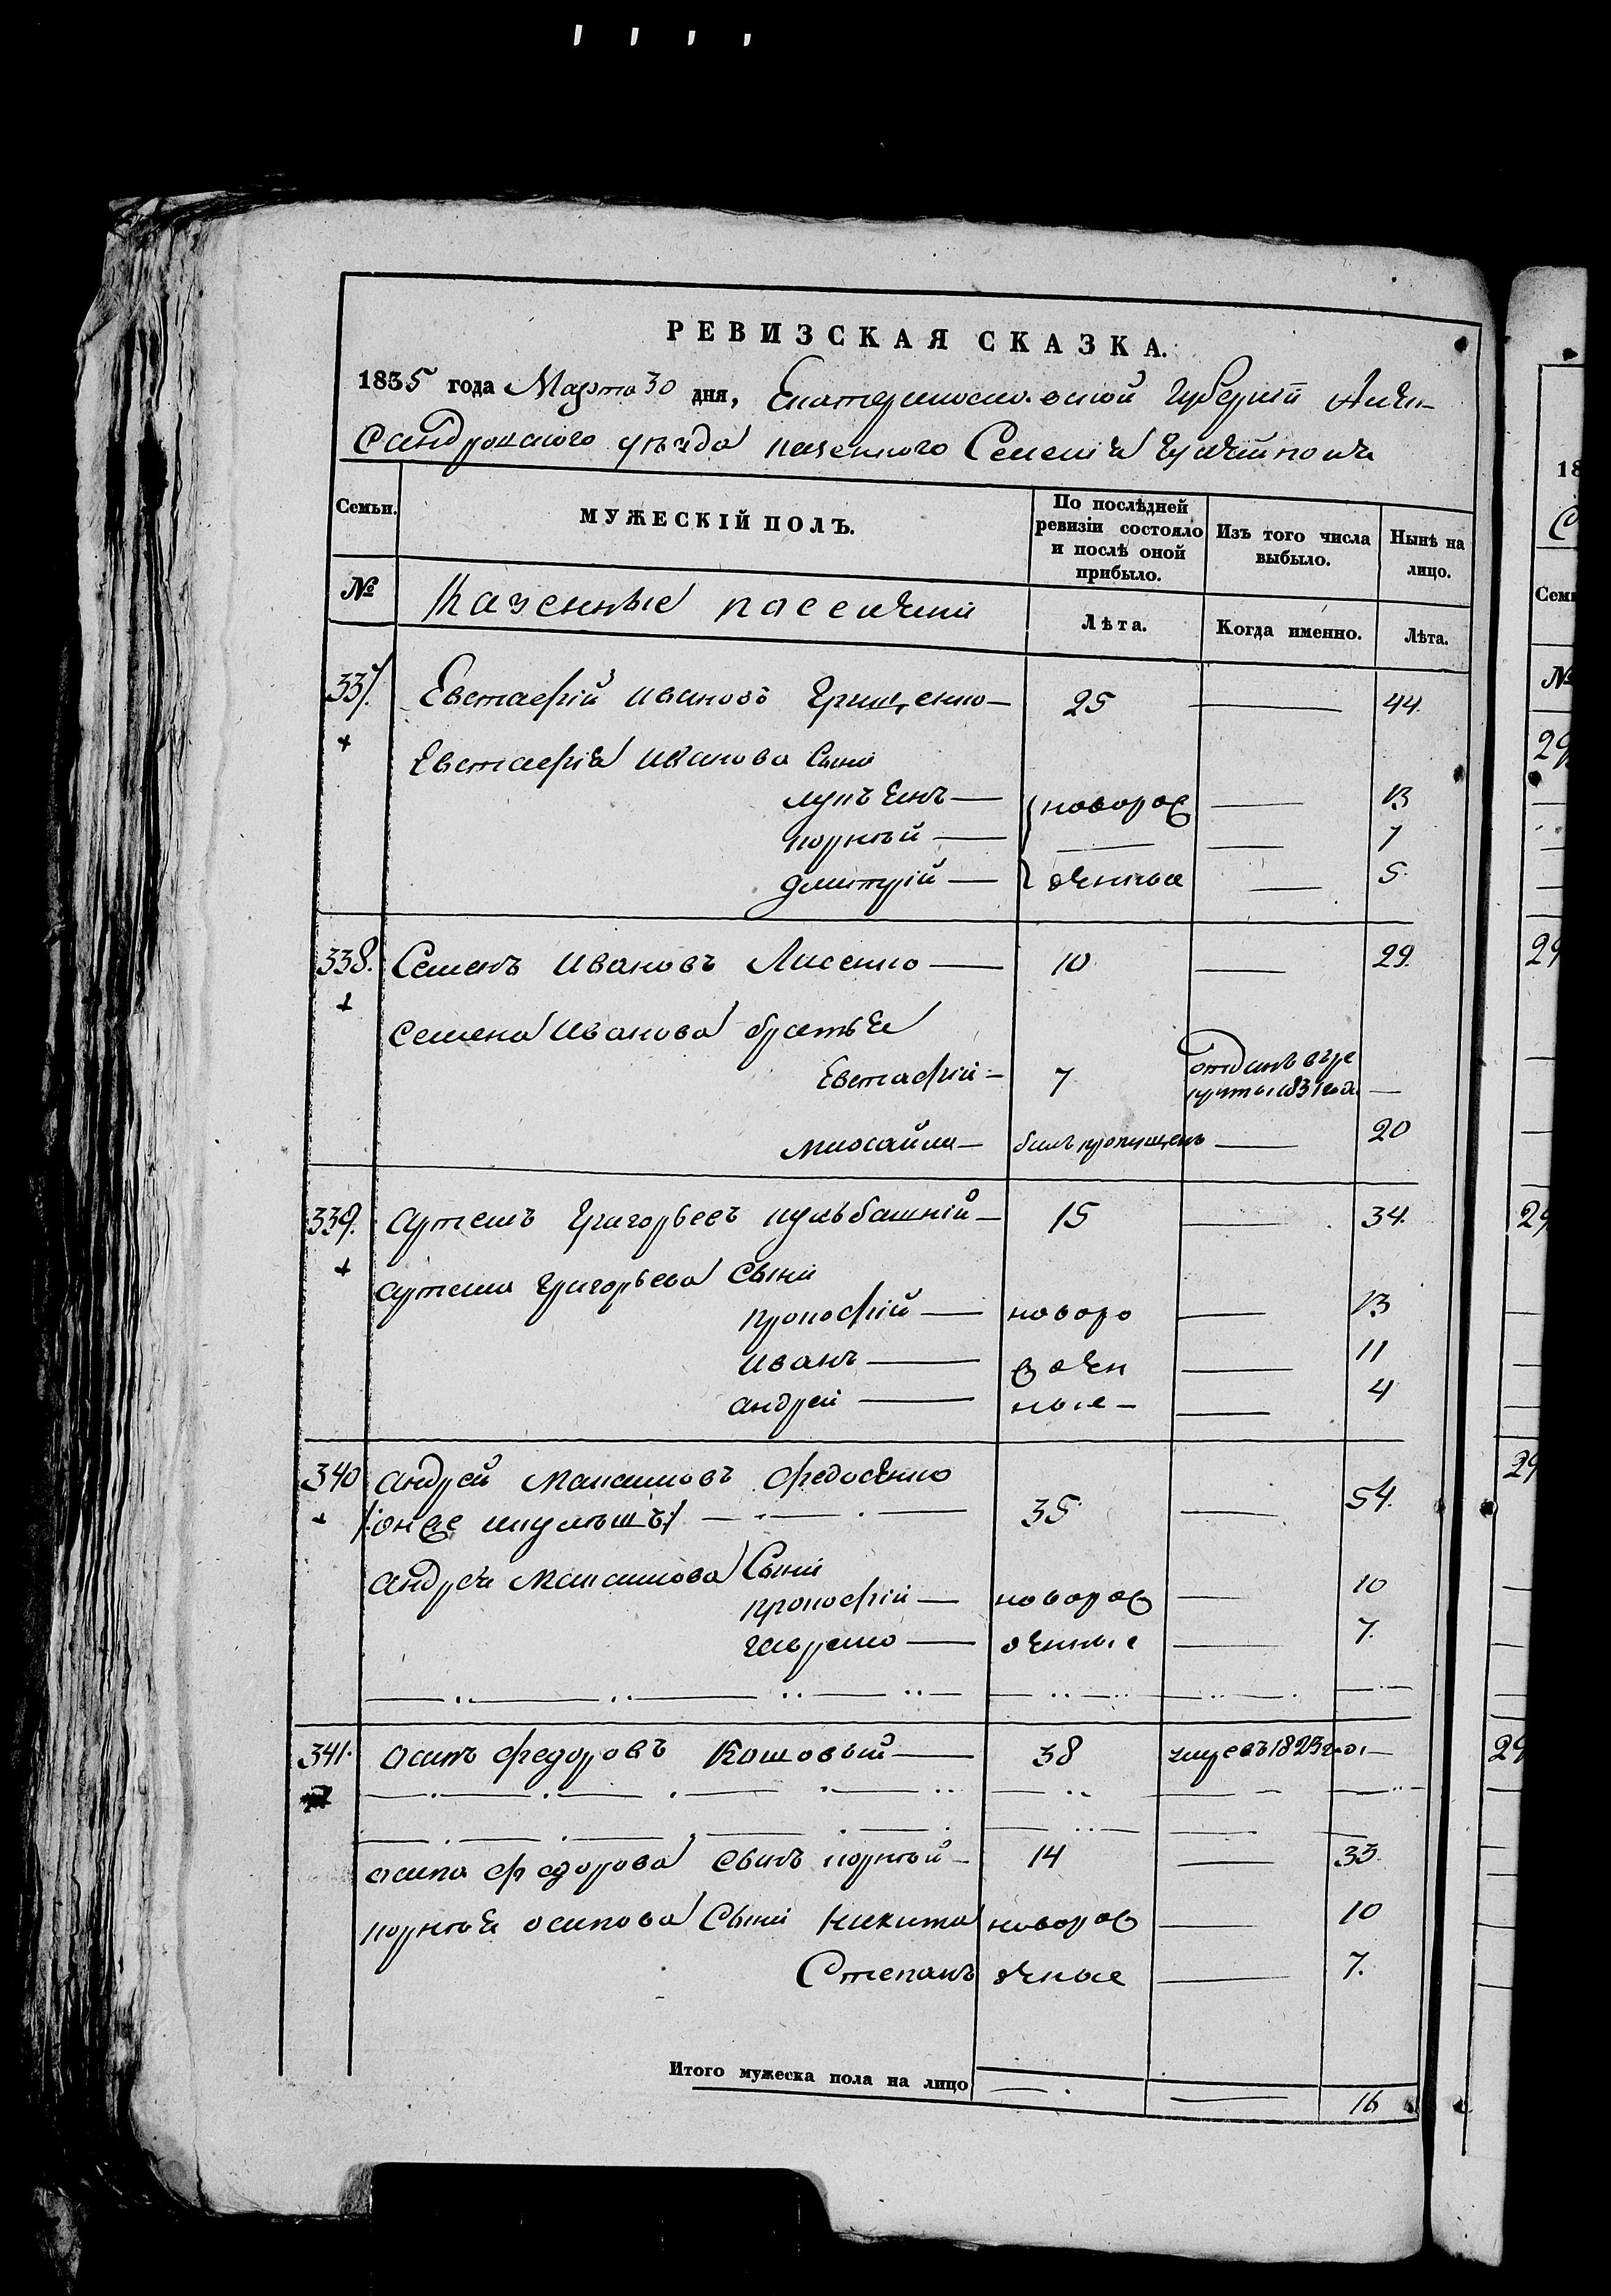 РЕВИЗСКАЯ СКАЗКА.
1835 года Марта 30 дня, Екатеринославской губернии Алек-
сандровского уезда казенного Селения
Семьи.
МУЖЕСКІЙ ПОЛЪ.
По послѣдней ревизіи состояло и послѣ оной прибыло.
Изъ того числа выбыло.
Нынѣ на лицо.
№
Казенные поселяни
Лѣта.
Когда именно.
Лѣта.
337. Евстафій Ивановъ Грищенко — 25 — 44.
Евстафія Иванова Сыни
лукъянъ — новорож — 13
корнѣй — — — 7
дмитрій — денные — 5.
338. Семенъ Ивановъ Лисенко — 10 — 29.
Семена Иванова братья
Евстафій — 7 отданъ в ре
круты 1831 года —
михайла — билъ пропущенъ — 20
339. Артемъ Григорьевъ кулбашній — 15 — 34.
Артема Григорьева Сыни
прокофій — новоро — 13
Иванъ — жден — 11
андрей — ные — 4
340 андрей Максимовъ федосенко
/:онже шкулѣшъ:/ — 35 — 54.
андрея Максимова Сыни
прокофій — новорож — 10
гаврило — денные — 7.
341. осипъ федоровъ Кошовый — 38 умре въ 1823 го: —
осипа федорова Сынъ корнѣй — 14 — 33.
корнѣя осипова Сыни Никита новорож — 10
Степанъ деные — 7.
Итого мужеска пола на лицо — — 16
18
С
Семи
№
29
29
29
29
29